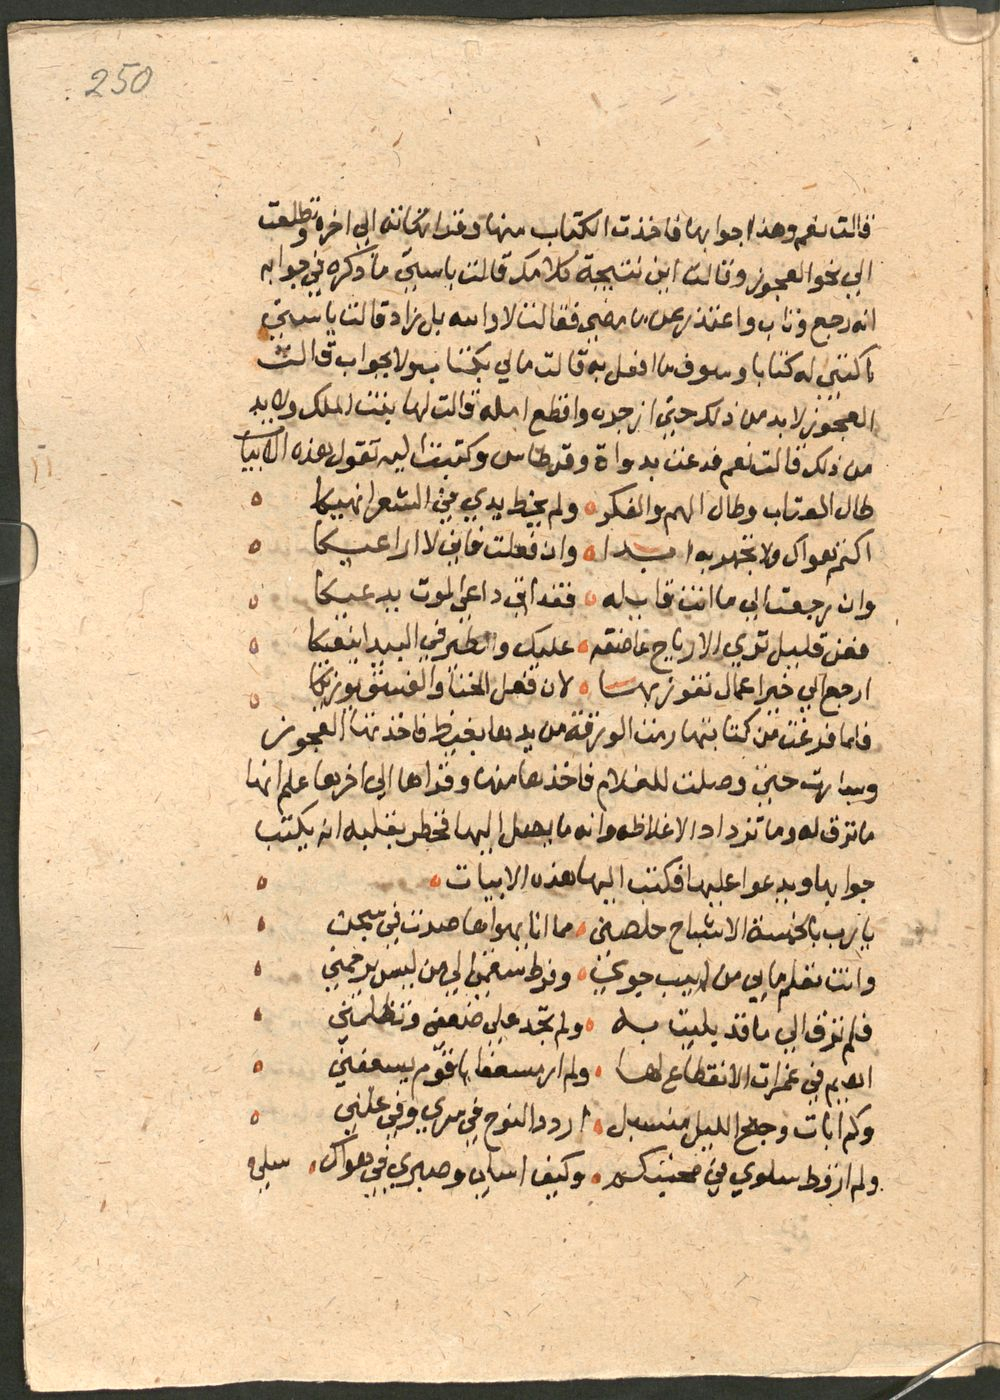 250
قالت نعم وهذا جوابها فاخذت الكتاب منها وقراته الي اخره وتطلعت
الي نحو العجوز وقالت اين نتيجة كلامك قالت ياستي ما ذكره في جوابه
انه رجع وتاب واعتذر عن ما مضي فقالت لا والله بل زاد قالت ياستي
اكتبي له كتابا وسوف ما افعل به قالت مالي بكتاب ولا بجواب قالت
العجوز لا بد من ذلك حتي ازجره واقطع امله قالت لها بنت الملك ولا بد
من ذلك قالت نعم فدعت بدواة وقرطاس وكتبت اليه تقول هذه الابيات
طال العتاب وطال الهم والفكر ولم بخط يدي في الشعر انهيكا
اكتم هواك ولا تجهر به ابدا وان فعلت فاني لا اراعيكا
وان رجعت الي ما انت قايله فقد اتي داعي الموت يدعيكا
فعن قليل تري الارياح عاصفه عليك والطير في البيدا ينعيكا
ارجع الي خير اعمال تفوز بها لان فعل الخنا والفسق
فلما فرغت من كتابتها رمت الورقة من يدها بغيظ فاخذتها العجوز
وسارت حتي وصلت للغلام فاخذها منها وقراها الي اخرها علم انها
ما ترق له وما تزداد الا غلاظه وانه ما يصل اليها فخطر بقلبه انه يكتب
جوابها ويدعوا عليها فكتب اليها هذه الابيات
يارب بالخمسة الاشياح خلصني مما انا بهواها صرت في سجن
وانت تعلم مابي من لهيب جوي وفرط سقمي الي من ليس يرحمني
فلم ترق الي ما قد بليت به ولم تجد علي ضعفي وتظلمني
اهيم في غمرات لا انقطاع لها ولم ار مسعفا يا قوم يسعفني
وكم ابات وجنح الليل منسبل اردد النوح في سري وفي علني
ولم ار قط سلوي في محبتكم وكيف اسلي وصبري في هواك سلي